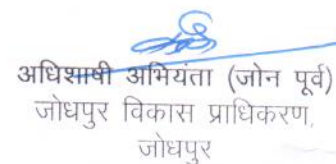 अधिशाषी अभियंता (जोन पूर्व)
जोधपुर विकास प्राधिकरण,
जोधपुर